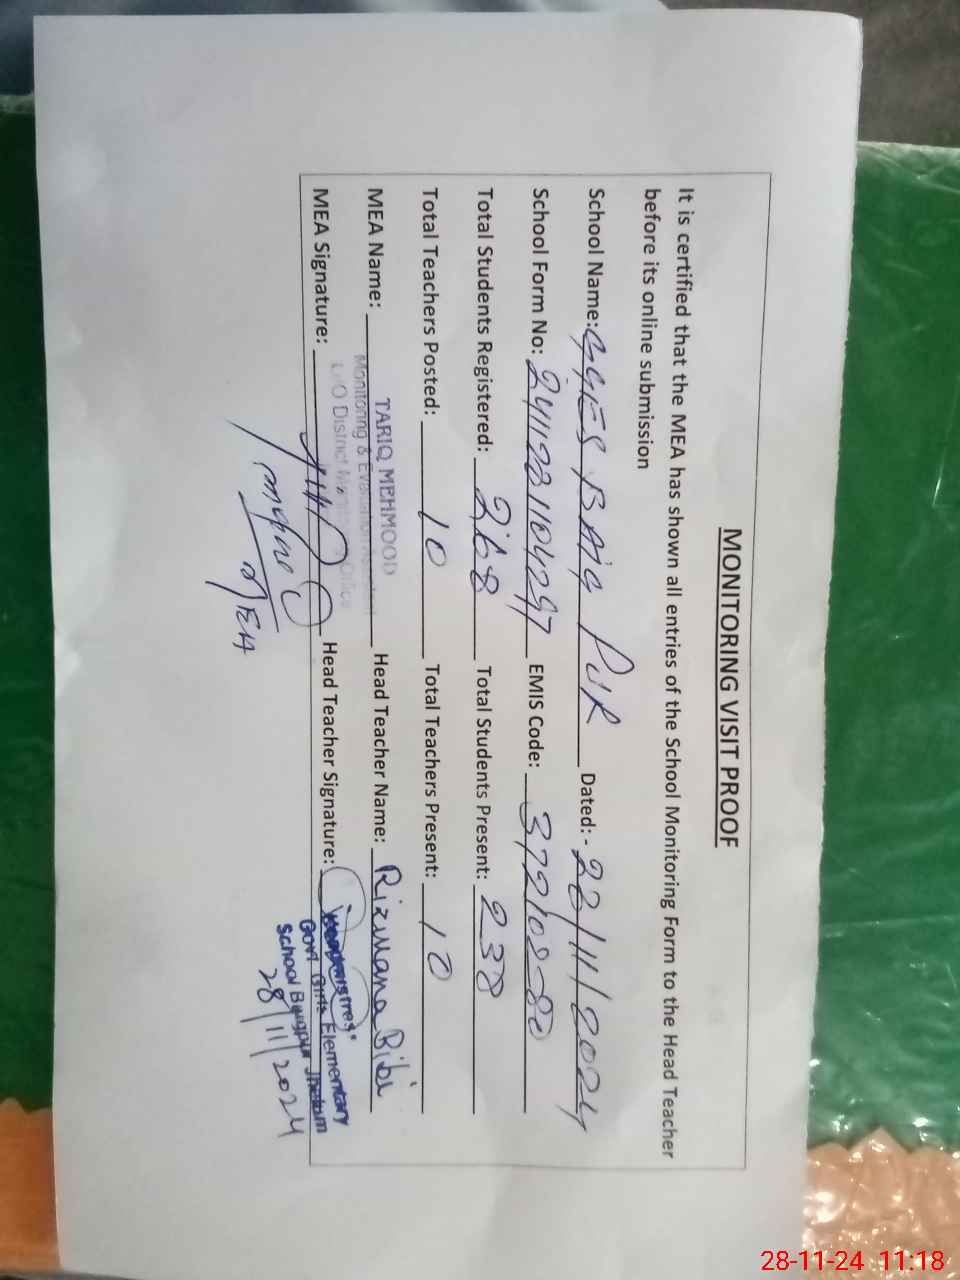 MONITORING VISIT PROOF
It is certified that the MEA has shown all entries of the School Monitoring Form to the Head Teacher
before its online submission
School Name: GGES BAIG PUR Dated:- 28/11/2024
School Form No: EMIS Code: 37210580
Total Students Registered: 268 Total Students Present: 238
Total Teachers Posted: 10 Total Teachers Present: 10
MEA Name: TARIQ MEHMOOD Head Teacher Name: Rizwana Bibi
Monitoring & Evaluation Assistant
District Office
MEA Signature: Head Teacher Signature:
Headmistress
Govt Girls Elementary
School Baigpur Jhelum
28/11/2024
28-11-24 11:18